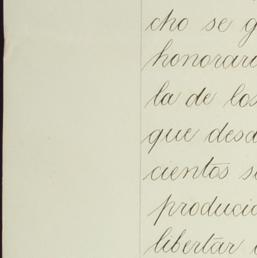 cho se g
honorar
la de los
que desd
cientos s
produci
libertar